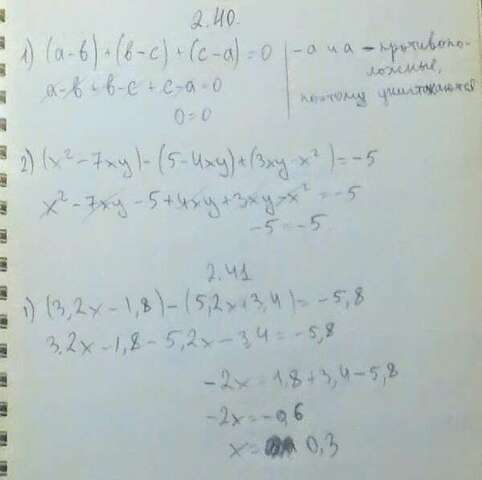 2.40.
1) (a-b)+(b-c)+(c-a)=0
a-b+b-c+c-a=0
0=0
-a и a - противопо-
ложные,
поэтому уничтожаются
2) (x²-7xy)-(5-4xy)+(3xy-x²)=-5
x²-7xy-5+4xy+3xy-x²=-5
-5=-5
2.41
1) (3,2x-1,8)-(5,2x+3,4)=-5,8
3,2x-1,8-5,2x-3,4=-5,8
-2x=1,8+3,4-5,8
-2x=-0,6
x= 0,3